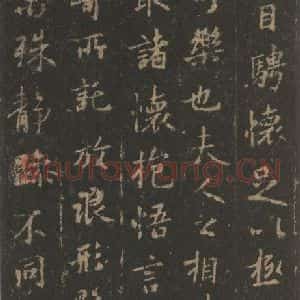 目騁懷足以極
樂也夫人之相
取諸懷抱悟言
寄所託放浪形
萬殊靜躁不同
shufawang.CN